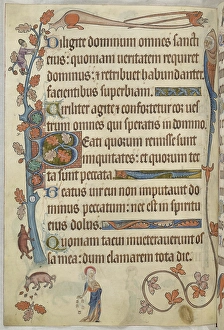 Diligite dominum omnes sancti
eius: quoniam ueritatem requiret
dominus: & retribuet habundanter
facientibus superbiam.
Uiriliter agite & confortetur cor ues
trum omnes qui speratis in domino.
Beati quorum remisse sunt
iniquitates: et quorum tec
ta sunt peccata
Beatus uir cui non imputauit do
minus peccatum: nec est in spiritu
eius dolus.
Quoniam tacui inueterauerunt os
sa mea: dum clamarem tota die.